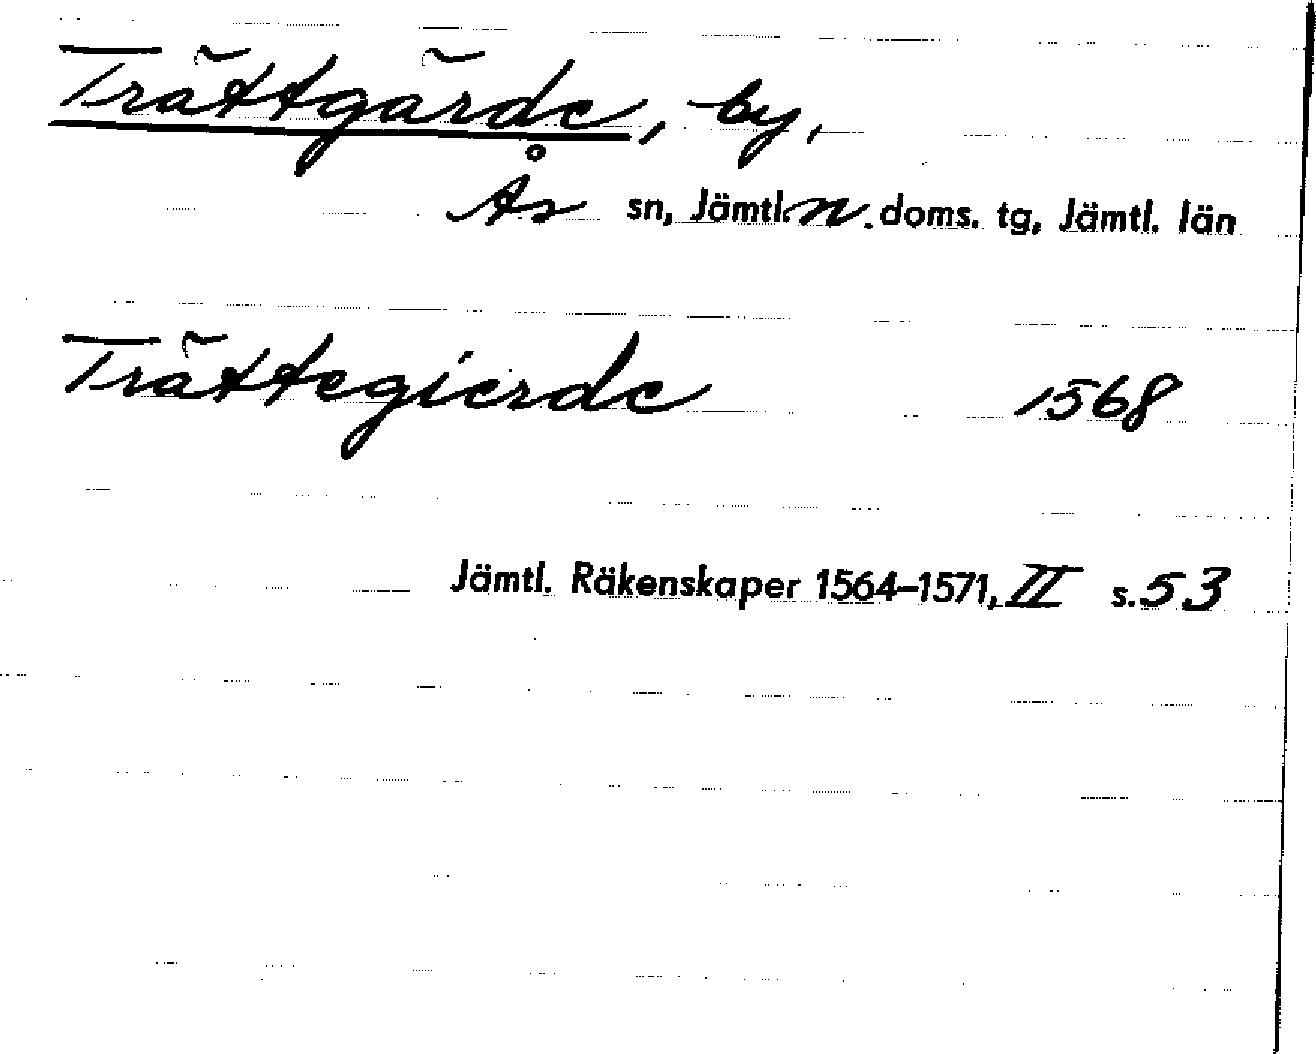 Trättgärde, by,
Ås sn, Jämtl. n. doms. tg, Jämtl. län
Trättegierde 1568
Jämtl. Räkenskaper 1564–1571, II s. 53